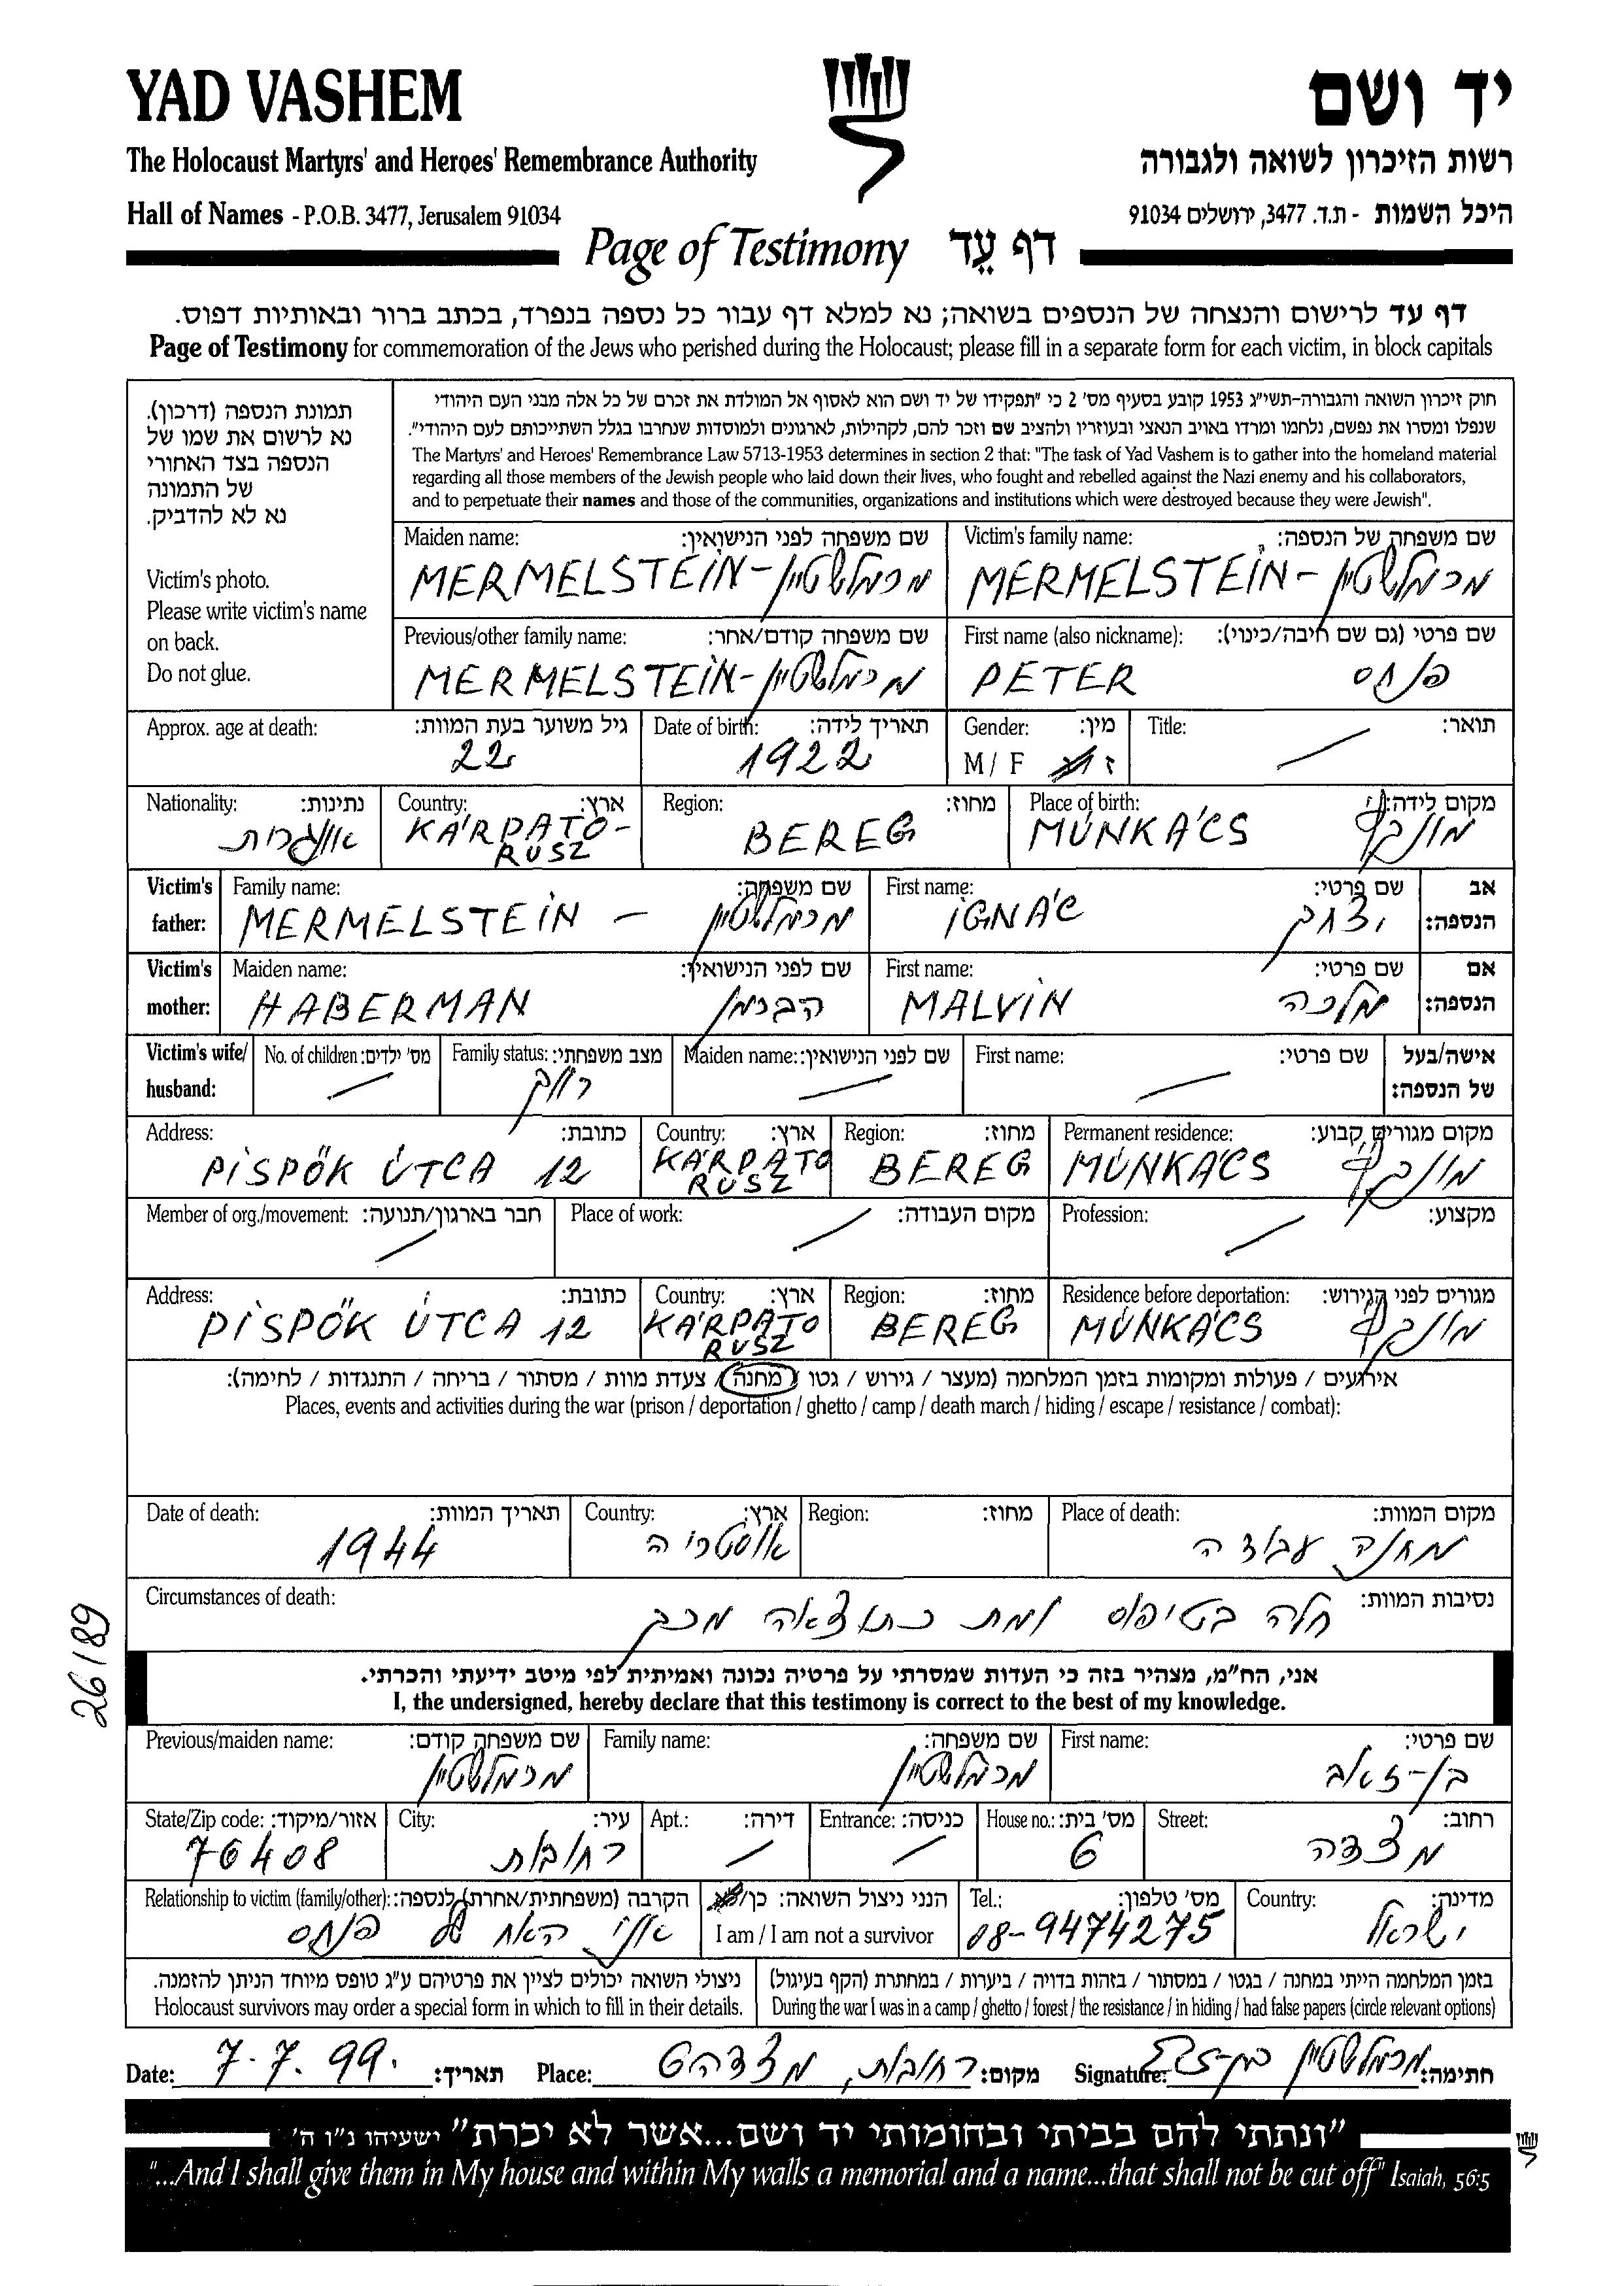 YAD VASHEM
יד ושם
The Holocaust Martyrs' and Heroes' Remembrance Authority
רשות הזיכרון לשואה ולגבורה
Hall of Names - P.O.B. 3477, Jerusalem 91034
היכל השמות - ת.ד. 3477, ירושלים 91034
Page of Testimony דף עֵד
דף עד לרישום והנצחה של הנספים בשואה; נא למלא דף עבור כל נספה בנפרד, בכתב ברור ובאותיות דפוס.
Page of Testimony for commemoration of the Jews who perished during the Holocaust; please fill in a separate form for each victim, in block capitals
תמונת הנספה (דרכון).
נא לרשום את שמו של
הנספה בצד האחורי
של התמונה
נא לא להדביק.
Victim's photo.
Please write victim's name
on back.
Do not glue.
חוק זיכרון השואה והגבורה-תשי"ג 1953 קובע בסעיף מס' 2 כי "תפקידו של יד ושם הוא לאסוף אל המולדת את זכרם של כל אלה מבני העם היהודי
שנפלו ומסרו את נפשם, נלחמו ומרדו באויב הנאצי ובעוזריו ולהציב שם וזכר להם, לקהילות, לארגונים ולמוסדות שנחרבו בגלל השתייכותם לעם היהודי".
The Martyrs' and Heroes' Remembrance Law 5713-1953 determines in section 2 that: "The task of Yad Vashem is to gather into the homeland material
regarding all those members of the Jewish people who laid down their lives, who fought and rebelled against the Nazi enemy and his collaborators,
and to perpetuate their names and those of the communities, organizations and institutions which were destroyed because they were Jewish".
Maiden name: שם משפחה לפני הנישואין:
MERMELSTEIN - מרמלשטיין
Victim's family name: שם משפחה של הנספה:
MERMELSTEIN - מרמלשטיין
Previous/other family name: שם משפחה קודם/אחר:
MERMELSTEIN - מרמלשטיין
First name (also nickname): שם פרטי (גם שם חיבה/כינוי):
PETER פנחס
Approx. age at death: גיל משוער בעת המוות:
22
Date of birth: תאריך לידה:
1922
Gender: מין:
M / F ז
Title: תואר:
Nationality: נתינות:
אונגרית
Country: ארץ:
KÁRPATO-
RUSZ
Region: מחוז:
BEREG
Place of birth: מקום לידה:
MUNKÁCS מונקץ'
Victim's father: Family name: שם משפחה:
MERMELSTEIN - מרמלשטיין
First name: שם פרטי:
IGNÁC יצחק
אב הנספה:
Victim's mother: Maiden name: שם לפני הנישואין:
HABERMAN הברמן
First name: שם פרטי:
MALVIN מלכה
אם הנספה:
Victim's wife/ husband: No. of children: מס' ילדים:
Family status: מצב משפחתי:
רווק
Maiden name: שם לפני הנישואין:
First name: שם פרטי:
אישה/בעל של הנספה:
Address: כתובת:
PISPÖK ÚTCA 12
Country: ארץ:
KÁRPATO
RUSZ
Region: מחוז:
BEREG
Permanent residence: מקום מגורים קבוע:
MUNKÁCS מונקץ'
Member of org./movement: חבר בארגון/תנועה:
Place of work: מקום העבודה:
Profession: מקצוע:
Address: כתובת:
PISPÖK ÚTCA 12
Country: ארץ:
KÁRPATO
RUSZ
Region: מחוז:
BEREG
Residence before deportation: מגורים לפני הגירוש:
MUNKÁCS מונקץ'
אירועים / פעולות ומקומות בזמן המלחמה (מעצר / גירוש / גטו / מחנה / צעדת מוות / מסתור / בריחה / התנגדות / לחימה):
Places, events and activities during the war (prison / deportation / ghetto / camp / death march / hiding / escape / resistance / combat):
Date of death: תאריך המוות:
1944
Country: ארץ:
אוסטריה
Region: מחוז:
Place of death: מקום המוות:
מחנה עבודה
Circumstances of death: נסיבות המוות:
חלה בטיפוס ומת כתוצאה מכך
26/89
אני, הח"מ, מצהיר בזה כי העדות שמסרתי על פרטיה נכונה ואמיתית לפי מיטב ידיעתי והכרתי.
I, the undersigned, hereby declare that this testimony is correct to the best of my knowledge.
Previous/maiden name: שם משפחה קודם:
מרמלשטיין
Family name: שם משפחה:
מרמלשטיין
First name: שם פרטי:
בן-זאב
State/Zip code: אזור/מיקוד:
76408
City: עיר:
רחובות
Apt.: דירה:
Entrance: כניסה:
House no.: מס' בית:
6
Street: רחוב:
מצדה
Relationship to victim (family/other): הקרבה (משפחתית/אחרת) לנספה:
אני האח של פנחס
הנני ניצול השואה: כן/לא
I am / I am not a survivor
Tel.: מס' טלפון:
08-9474275
Country: מדינה:
ישראל
ניצולי השואה יכולים לציין את פרטיהם ע"ג טופס מיוחד הניתן להזמנה.
Holocaust survivors may order a special form in which to fill in their details.
בזמן המלחמה הייתי במחנה / בגטו / במסתור / בזהות בדויה / ביערות / במחתרת (הקף בעיגול)
During the war I was in a camp / ghetto / forest / the resistance / in hiding / had false papers (circle relevant options)
Date: 7.7.99. תאריך:
Place: רחובות, מצדה 6 מקום:
Signature: מרמלשטיין בן-זאב חתימה:
"ונתתי להם בביתי ובחומותי יד ושם...אשר לא יכרת" ישעיהו נ"ו ה'
"...And I shall give them in My house and within My walls a memorial and a name...that shall not be cut off" Isaiah, 56:5